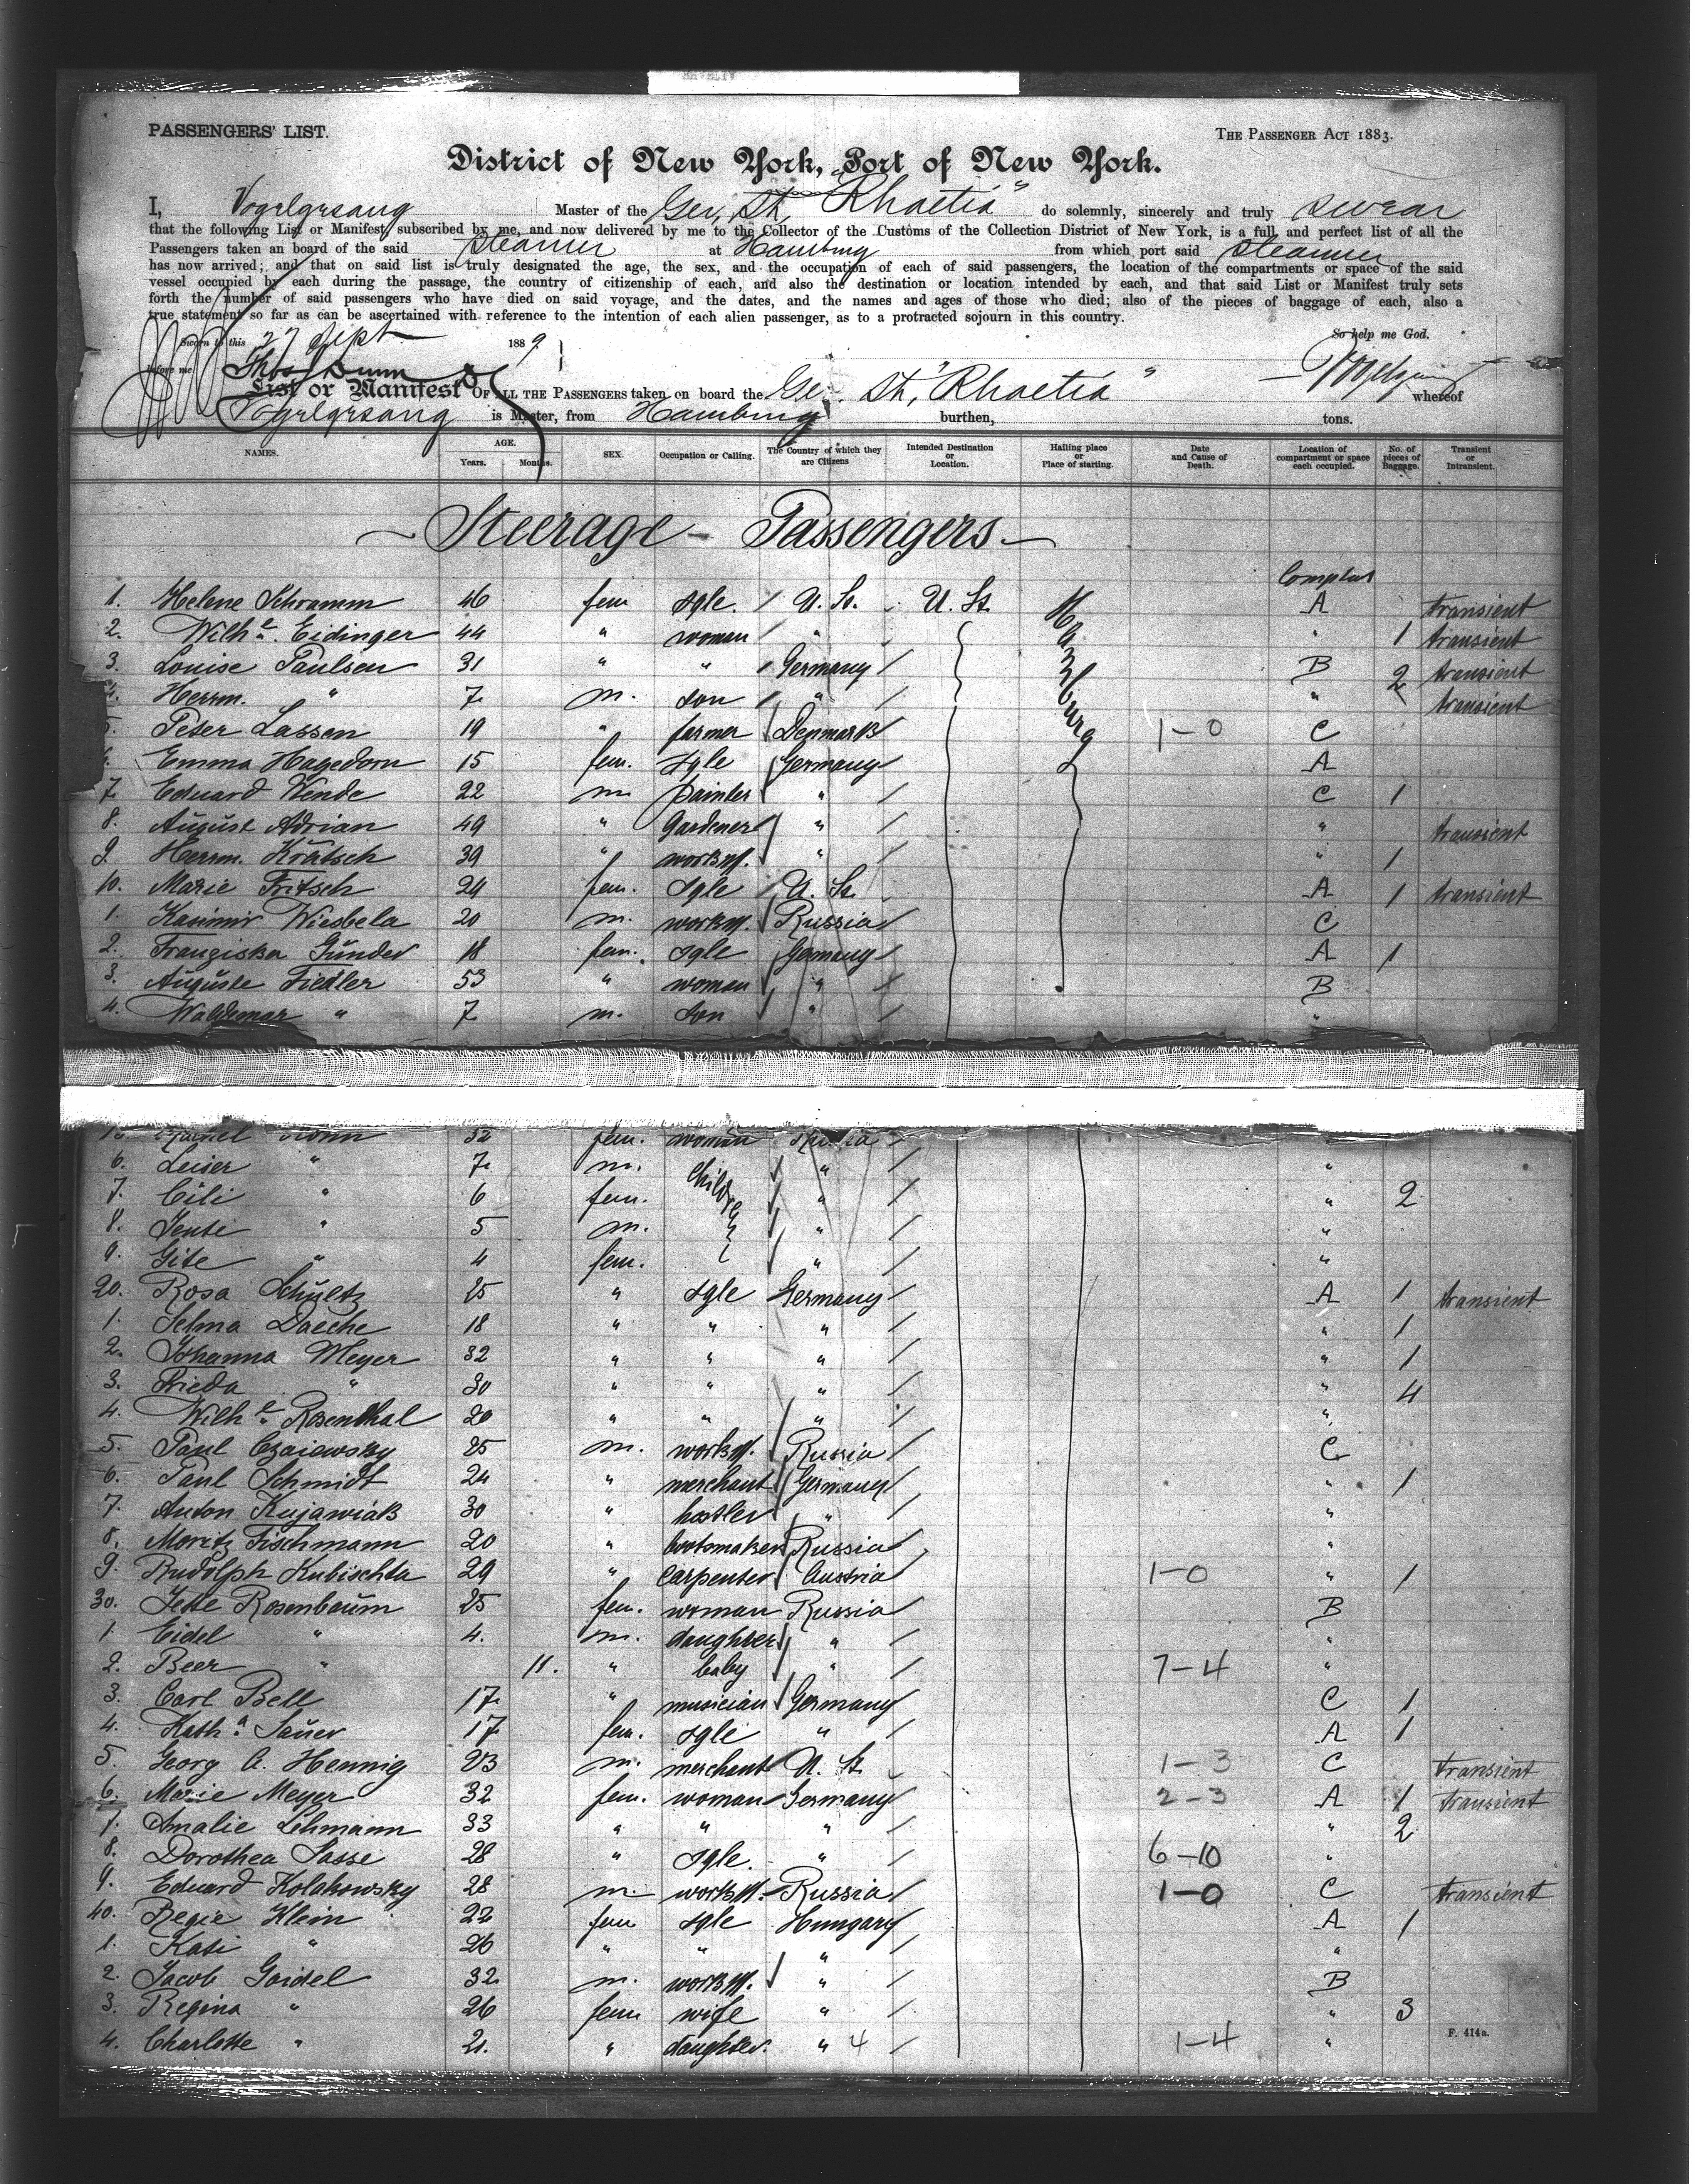 PASSENGERS' LIST.
THE PASSENGER ACT 1883.
District of New York, Port of New York.
I, Vogelgesang Master of the Ger. St. "Rhaetia" do solemnly, sincerely and truly swear
that the following List or Manifest, subscribed by me, and now delivered by me to the Collector of the Customs of the Collection District of New York, is a full and perfect list of all the
Passengers taken on board of the said steamer at Hamburg from which port said steamer
has now arrived; and that on said list is truly designated the age, the sex, and the occupation of each of said passengers, the location of the compartments or space of the said
vessel occupied by each during the passage, the country of citizenship of each, and also the destination or location intended by each, and that said List or Manifest truly sets
forth the number of said passengers who have died on said voyage, and the dates, and the names and ages of those who died; also of the pieces of baggage of each, also a
true statement so far as can be ascertained with reference to the intention of each alien passenger, as to a protracted sojourn in this country.
So help me God.
Sworn to this 27 Sept 1889
before me Thos Dunn
List or Manifest OF ALL THE PASSENGERS taken on board the Ger. St. "Rhaetia" whereof
Vogelgesang is Master, from Hamburg burthen, tons.
NAMES. AGE. Years. Months. SEX. Occupation or Calling. The Country of which they are Citizens Intended Destination or Location. Hailing place or Place of starting. Date and Cause of Death. Location of compartment or space each occupied. No. of pieces of Baggage. Transient or Intransient.
Steerage - Passengers
1. Helene Schramm 46 fem sgle. U. St. U. St. A transient
2. Wilhe. Eidinger 44 " woman " " 1 transient
3. Louise Paulsen 31 " " Germany B 2 transient
4. Herrm. " 7 m. son " " transient
Hamburg
5. Peter Lassen 19 " farmer Denmark 1-0 C
6. Emma Hagedorn 15 fem. sgle Germany A
7. Eduard Wende 22 m. painter " C 1
8. August Adrian 49 " gardener " " transient
9. Herrm. Krätsch 39 " workm. " " 1
10. Marie Fritsch 24 fem. sgle U. St. A 1 transient
1. Kasimir Wiesbela 20 m. workm. Russia C
2. Franziska Günder 18 fem. sgle Germany A 1
3. Auguste Fiedler 53 " woman " B
4. Waldemar " 7 m. son " "
32 fem. woman "
6. Leiser " 7 m. children " "
7. Cili " 6 fem. " " 2
8. Jenti " 5 m. " "
9. Gite " 4 fem. " "
20. Rosa Schultz 25 " sgle Germany A 1 transient
1. Selma Daeche 18 " " " " 1
2. Johanna Meyer 32 " " " " 1
3. Frieda " 30 " " " " 4
4. Wilhe. Rosenthal 20 " " " "
5. Paul Czaiewsky 25 m. workm. Russia C
6. Paul Schmidt 24 " merchant Germany " 1
7. Anton Kujawiak 30 " hostler " "
8. Moritz Fischmann 20 " bootmaker Russia "
9. Rudolph Kubischta 29 " carpenter Austria 1-0 " 1
30. Jette Rosenbaum 25 fem. woman Russia B
1. Eidel " 4. m. daughter " "
2. Beer " 11. " baby " 7-4 "
3. Carl Bell 17 " musician Germany C 1
4. Katha. Sauer 17 fem. sgle " A 1
5. Georg A. Hennig 23 m. merchant U. St. 1-3 C transient
6. Marie Meyer 32 fem. woman Germany 2-3 A 1 transient
7. Amalie Lehmann 33 " " " " 2
8. Dorothea Sasse 28 " sgle. " 6-10 "
9. Eduard Kolakowsky 28 m workm. Russia 1-0 C transient
40. Regie Klein 22 fem sgle Hungary A 1
1. Kati " 26 " " " "
2. Jacob Goidel 32 m. workm. " B
3. Regina " 26 fem wife " " 3
4. Charlotte " 21. " daughter. " 4 1-4 "
F. 414a.